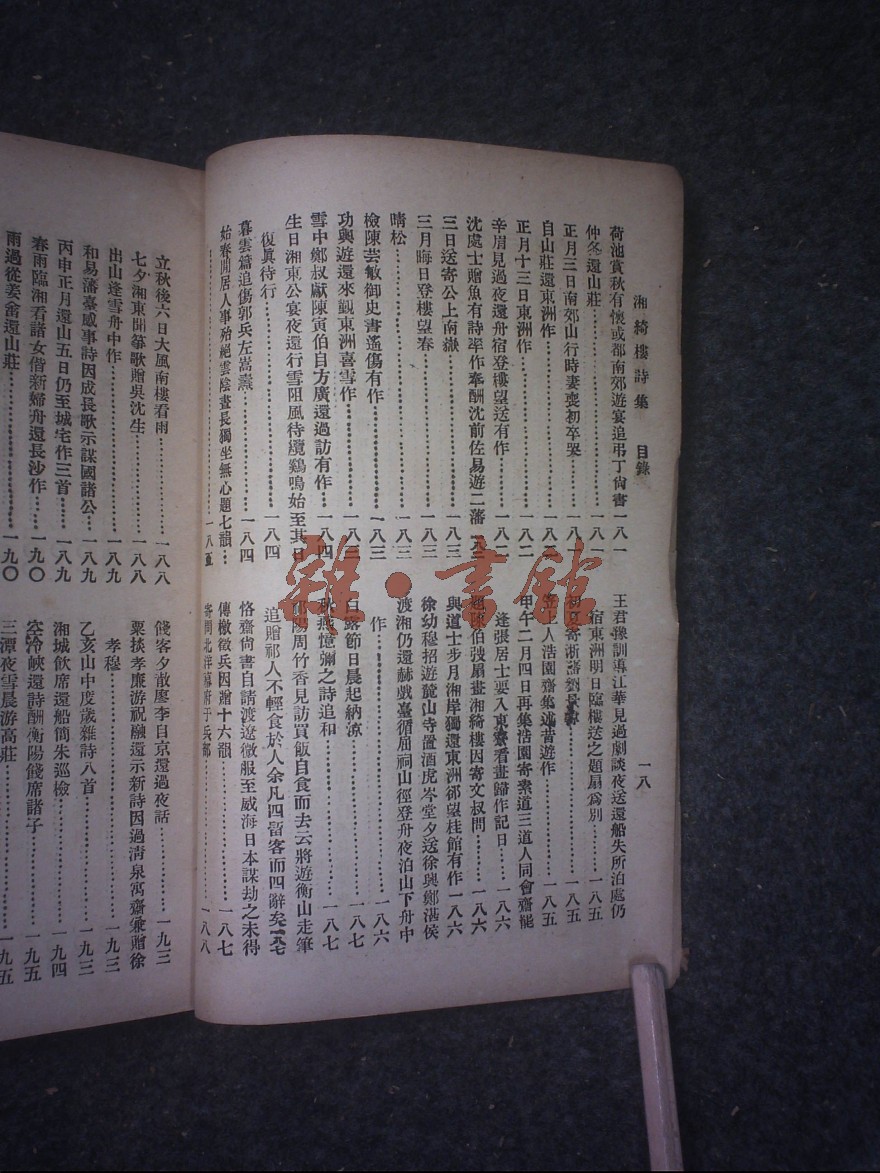 湘綺樓詩集　目錄　一八
荷池賞秋有懷或都南郊遊宴追弔丁尙書一八一
仲冬還山莊……一八一
正月三日南郊山行時妻喪初卒哭…一八二
自山莊還東洲作……一八二
正月十三日東洲作……一八二
辛眉見過夜還舟宿登樓望送有作…一八二
沈處士贈魚有詩半作奉酬沈前佐易遊二藩
三日送寄公上南嶽……一八三
三月晦日登樓望春……一八三
晴松……一八三
檢陳芸敏御史書遙傷有作……一八三
功與遊還來觀東洲喜雪作……一八三
雪中鄭叔獻陳寅伯自方廣還過訪有作…一八四
生日湘東公宴夜還行雪阻風待纜鷄鳴始至其日
復眞待行……一八四
暮雲篇追傷郭兵左嵩燾……一八四
始春閒居人事殆絕雲陰晝長獨坐無心題七韻…
……一八五
王君豫訓導江華見過劇談夜送還船失所泊處仍
宿東洲明日臨樓送之題扇爲別……一八五
寄浙……一八五
上人浩園齋集述昔遊作……一八五
甲午二月四日再集浩園寄素道三道人同會齋罷
逢張居士要入東寮看畫歸作記日……一八六
陳伯弢扇畫湘綺樓因寄文叔問……一八六
與道士步月湘岸獨還東洲郤望桂館有作一八六
徐幼穆招遊麓山寺置酒虎岑堂夕送徐與鄭湛侯
渡湘仍還赫戲臺循屈祠山徑登舟夜泊山下舟中
作……一八六
白露節日晨起納涼……一八七
秋燕憶彌之詩追和……一八七
陽周竹香見訪買飯自食而去云將遊衡山走筆
追贈祁人不輕食於人余凡四留客而四辭矣一八七
恪齋尙書自請渡遼微服至威海日本謀劫之未得
傳檄徵兵因贈十六韻……一八七
寄問北洋幕府于兵部……一八八
立秋後六日大風南樓看雨……一八八
七夕湘東聞箏歌贈吳沈生……一八八
出山逢雪舟中作……一八九
和易藩臺感事詩因成長歌示謀國諸公…一八九
丙申正月還山五日仍至城宅作三首…一八九
春雨臨湘看諸女偕新婦舟還長沙作…一九〇
雨過從姜畬還山莊……一九〇
餞客夕散廖李自京還過夜話……一九三
粟掞孝廉游祝融還示新詩因過淸泉寓齋兼贈徐
孝穆……一九三
乙亥山中度歲雜詩八首……一九三
湘城飮席還船簡朱巡檢……一九四
空泠峽還詩酬衡陽餞席諸子……一九五
三潭夜雪晨游高莊……一九五
雜·書館